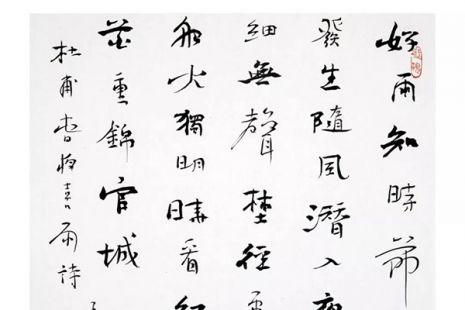 好雨知時節
發生隨風潛入夜
細無聲埜徑
船火獨明曉看紅
花重錦官城
杜甫春夜喜雨詩